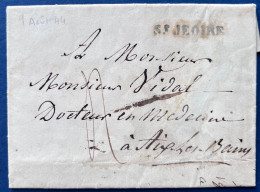 1 Août 44
ST JEOIRE
A Monsieur
Monsieur Vidal
Docteur en Medecine
à Aix les Bains